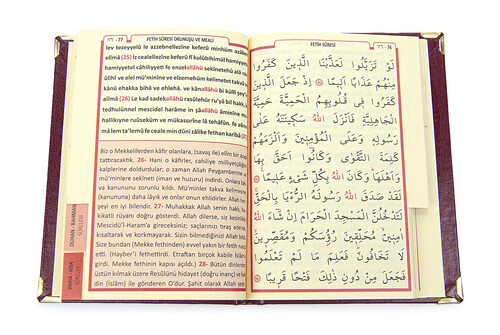 ٧٦ - 77 FETİH SÛRESİ OKUNUŞU VE MEALİ
lev tezeyyelû le azzebnellezîne keferû minhüm azâben
elîmâ (25) İz cealellezîne keferû fî kulûbihimül hamiyyete
hamiyyetel câhiliyyeti fe enzelallâhü sekînetehû alâ rasû
ûlihî ve alel mü'minîne ve elzemehüm kelimetet takvâ ve
kânû ehakka bihâ ve ehlehâ. ve kânallâhü bi külli şey'in
alîmâ (26) Le kad sadekallâhü rasûlehür ru'yâ bil hakk. le
tedhulünnel mescidel harâme in şâallâhü âminîne muhallikıyne
hallikıyne ruûseküm ve mükassırîne lâ tehâfûn. fe alime
mâ lem ta'lemû fe ceale min dûni zâlike fethan karîbâ (27)
Biz o Mekkelilerden kâfir olanlara, (savaş ile) elîm bir azap
tattıracaktık. 26- Hani o kâfirler, cahiliye milliyetçiliğini
kalplerine doldurdular; o zaman Allah Peygamberine ve
mü'minlere sekîneti (iman ve huzuru) indirdi. Onları takva
ve kanununu zorunlu kıldı. Mü'minler takva kelimesine
(kanununa) daha lâyık ve onlar onun ehlidirler. Allah her
şeyi en iyi bilendir. 27- Muhakkak Allah senin hakk
ikatli rüyanı doğru gösterdi. Allah dilerse, siz kesinlikle
Mescidü'l-Haram'a gireceksiniz; saçlarınızı tıraş ederek
kısaltarak ve korkmayarak. Sizin bilmediğinizi Allah bilir
Size bundan (Mekke fethinden) evvel yakın bir fetih nasip
etti. (Hayber'i fethettirdi. Etraftan birçok kabile İslâm'a
girdi. Mekke fethinin kapısı açıldı.) 28- Bütün dinlerden
üstün kılmak üzere Resûlünü hidayet (doğru inanç) ve hak
din (İslâm) ile gönderen O'dur. Şahit olarak Allah yeter
DUHAN - RAHMAN
SÛRELERİ
FETİH SÛRESİ ٧٦ - 76
لَوْ تَزَيَّلُوا لَعَذَّبْنَا الَّذِينَ كَفَرُوا
مِنْهُمْ عَذَابًا أَلِيمًا اِذْ جَعَلَ الَّذِينَ
كَفَرُوا فِي قُلُوبِهِمُ الْحَمِيَّةَ حَمِيَّةَ
الْجَاهِلِيَّةِ فَأَنْزَلَ اللّٰهُ سَكِينَتَهُ عَلَى
رَسُولِهِ وَعَلَى الْمُؤْمِنِينَ وَأَلْزَمَهُمْ
كَلِمَةَ التَّقْوٰى وَكَانُوا أَحَقَّ بِهَا
وَأَهْلَهَا وَكَانَ اللّٰهُ بِكُلِّ شَيْءٍ عَلِيمًا
لَقَدْ صَدَقَ اللّٰهُ رَسُولَهُ الرُّءْيَا بِالْحَقِّ
لَتَدْخُلُنَّ الْمَسْجِدَ الْحَرَامَ إِنْ شَاءَ اللّٰهُ
اٰمِنِينَ مُحَلِّقِينَ رُءُوسَكُمْ وَمُقَصِّرِينَ
لَا تَخَافُونَ فَعَلِمَ مَا لَمْ تَعْلَمُوا
فَجَعَلَ مِنْ دُونِ ذٰلِكَ فَتْحًا قَرِيبًا